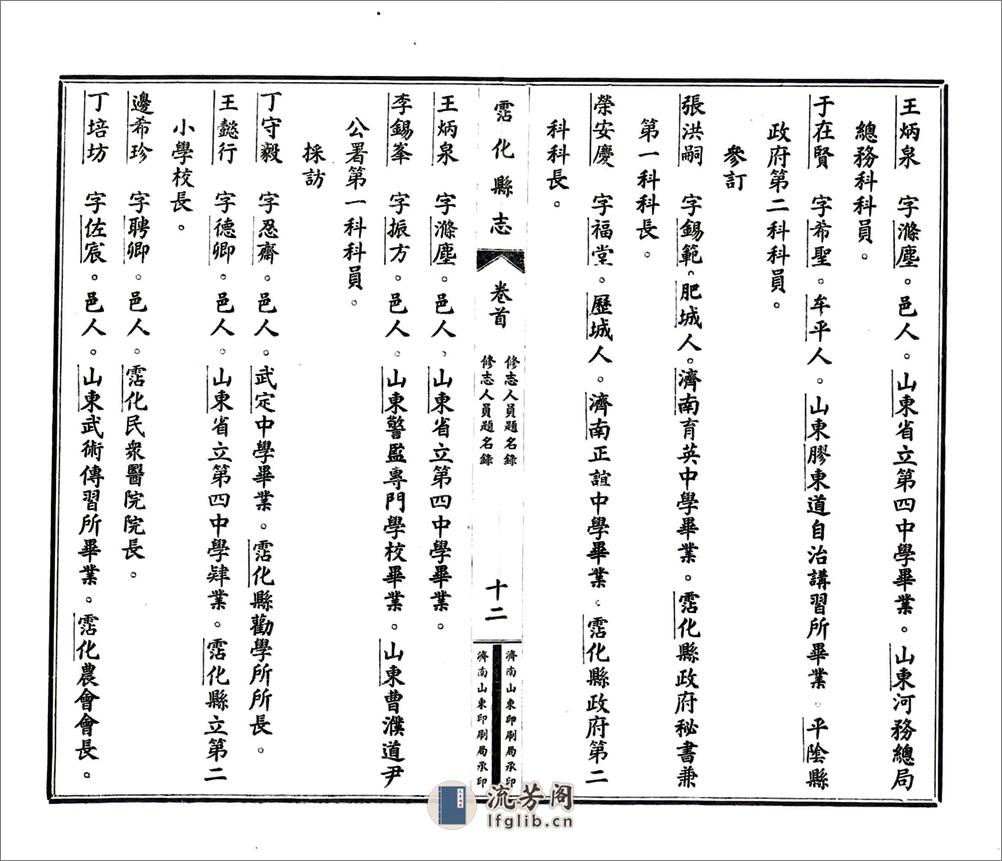 王炳泉　字滌塵。邑人。山東省立第四中學畢業。山東河務總局
總務科科員。
于在賢　字希聖。牟平人。山東膠東道自治講習所畢業。平陰縣
政府第二科科員。
參訂
張洪嗣　字錫範。肥城人。濟南育英中學畢業。霑化縣政府秘書兼
第一科科長。
榮安慶　字福堂。歷城人。濟南正誼中學畢業。霑化縣政府第二
科科長。
霑化縣志
卷首
修志人員題名錄
修志人員題名錄
十二
濟南山東印刷局承印
濟南山東印刷局承印
王炳泉　字滌塵。邑人。山東省立第四中學畢業。
李錫峯　字振方。邑人。山東警監專門學校畢業。山東曹濮道尹
公署第一科科員。
採訪
丁守毅　字忍齋。邑人。武定中學畢業。霑化縣勸學所所長。
王懿行　字德卿。邑人。山東省立第四中學肄業。霑化縣立第二
小學校長。
邊希珍　字聘卿。邑人。霑化民衆醫院院長。
丁培坊　字佐宸。邑人。山東武術傳習所畢業。霑化農會會長。
流芳阁
lfglib.cn